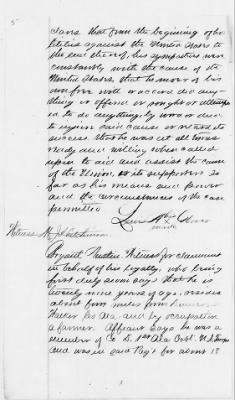 5
clares that from the beginning of hos-
tilities against the United States to
the end thereof, his sympathies were
constantly with the cause of the
United States, that he never of his
own free will or accord did any-
thing or offered or sought or attempted
to do anything by word or deed
to injure said cause or retard its
success that he was at all times
ready and willing when called
upon to aid and assist the cause
of the Union, or its supporters so
far as his means and power
and the circumstances of the case
permitted
mark
Witness
Bryant Witness for claimant
in behalf of his loyalty, who being
first duly sworn says that he is
twenty nine years of age, resides
about five miles from
Walker Co Ala, and by occupation
a farmer. Affiant says he was a
member of Co D. 1st Ala Cav. U.S. Troops
and was in said Reg't for about 18